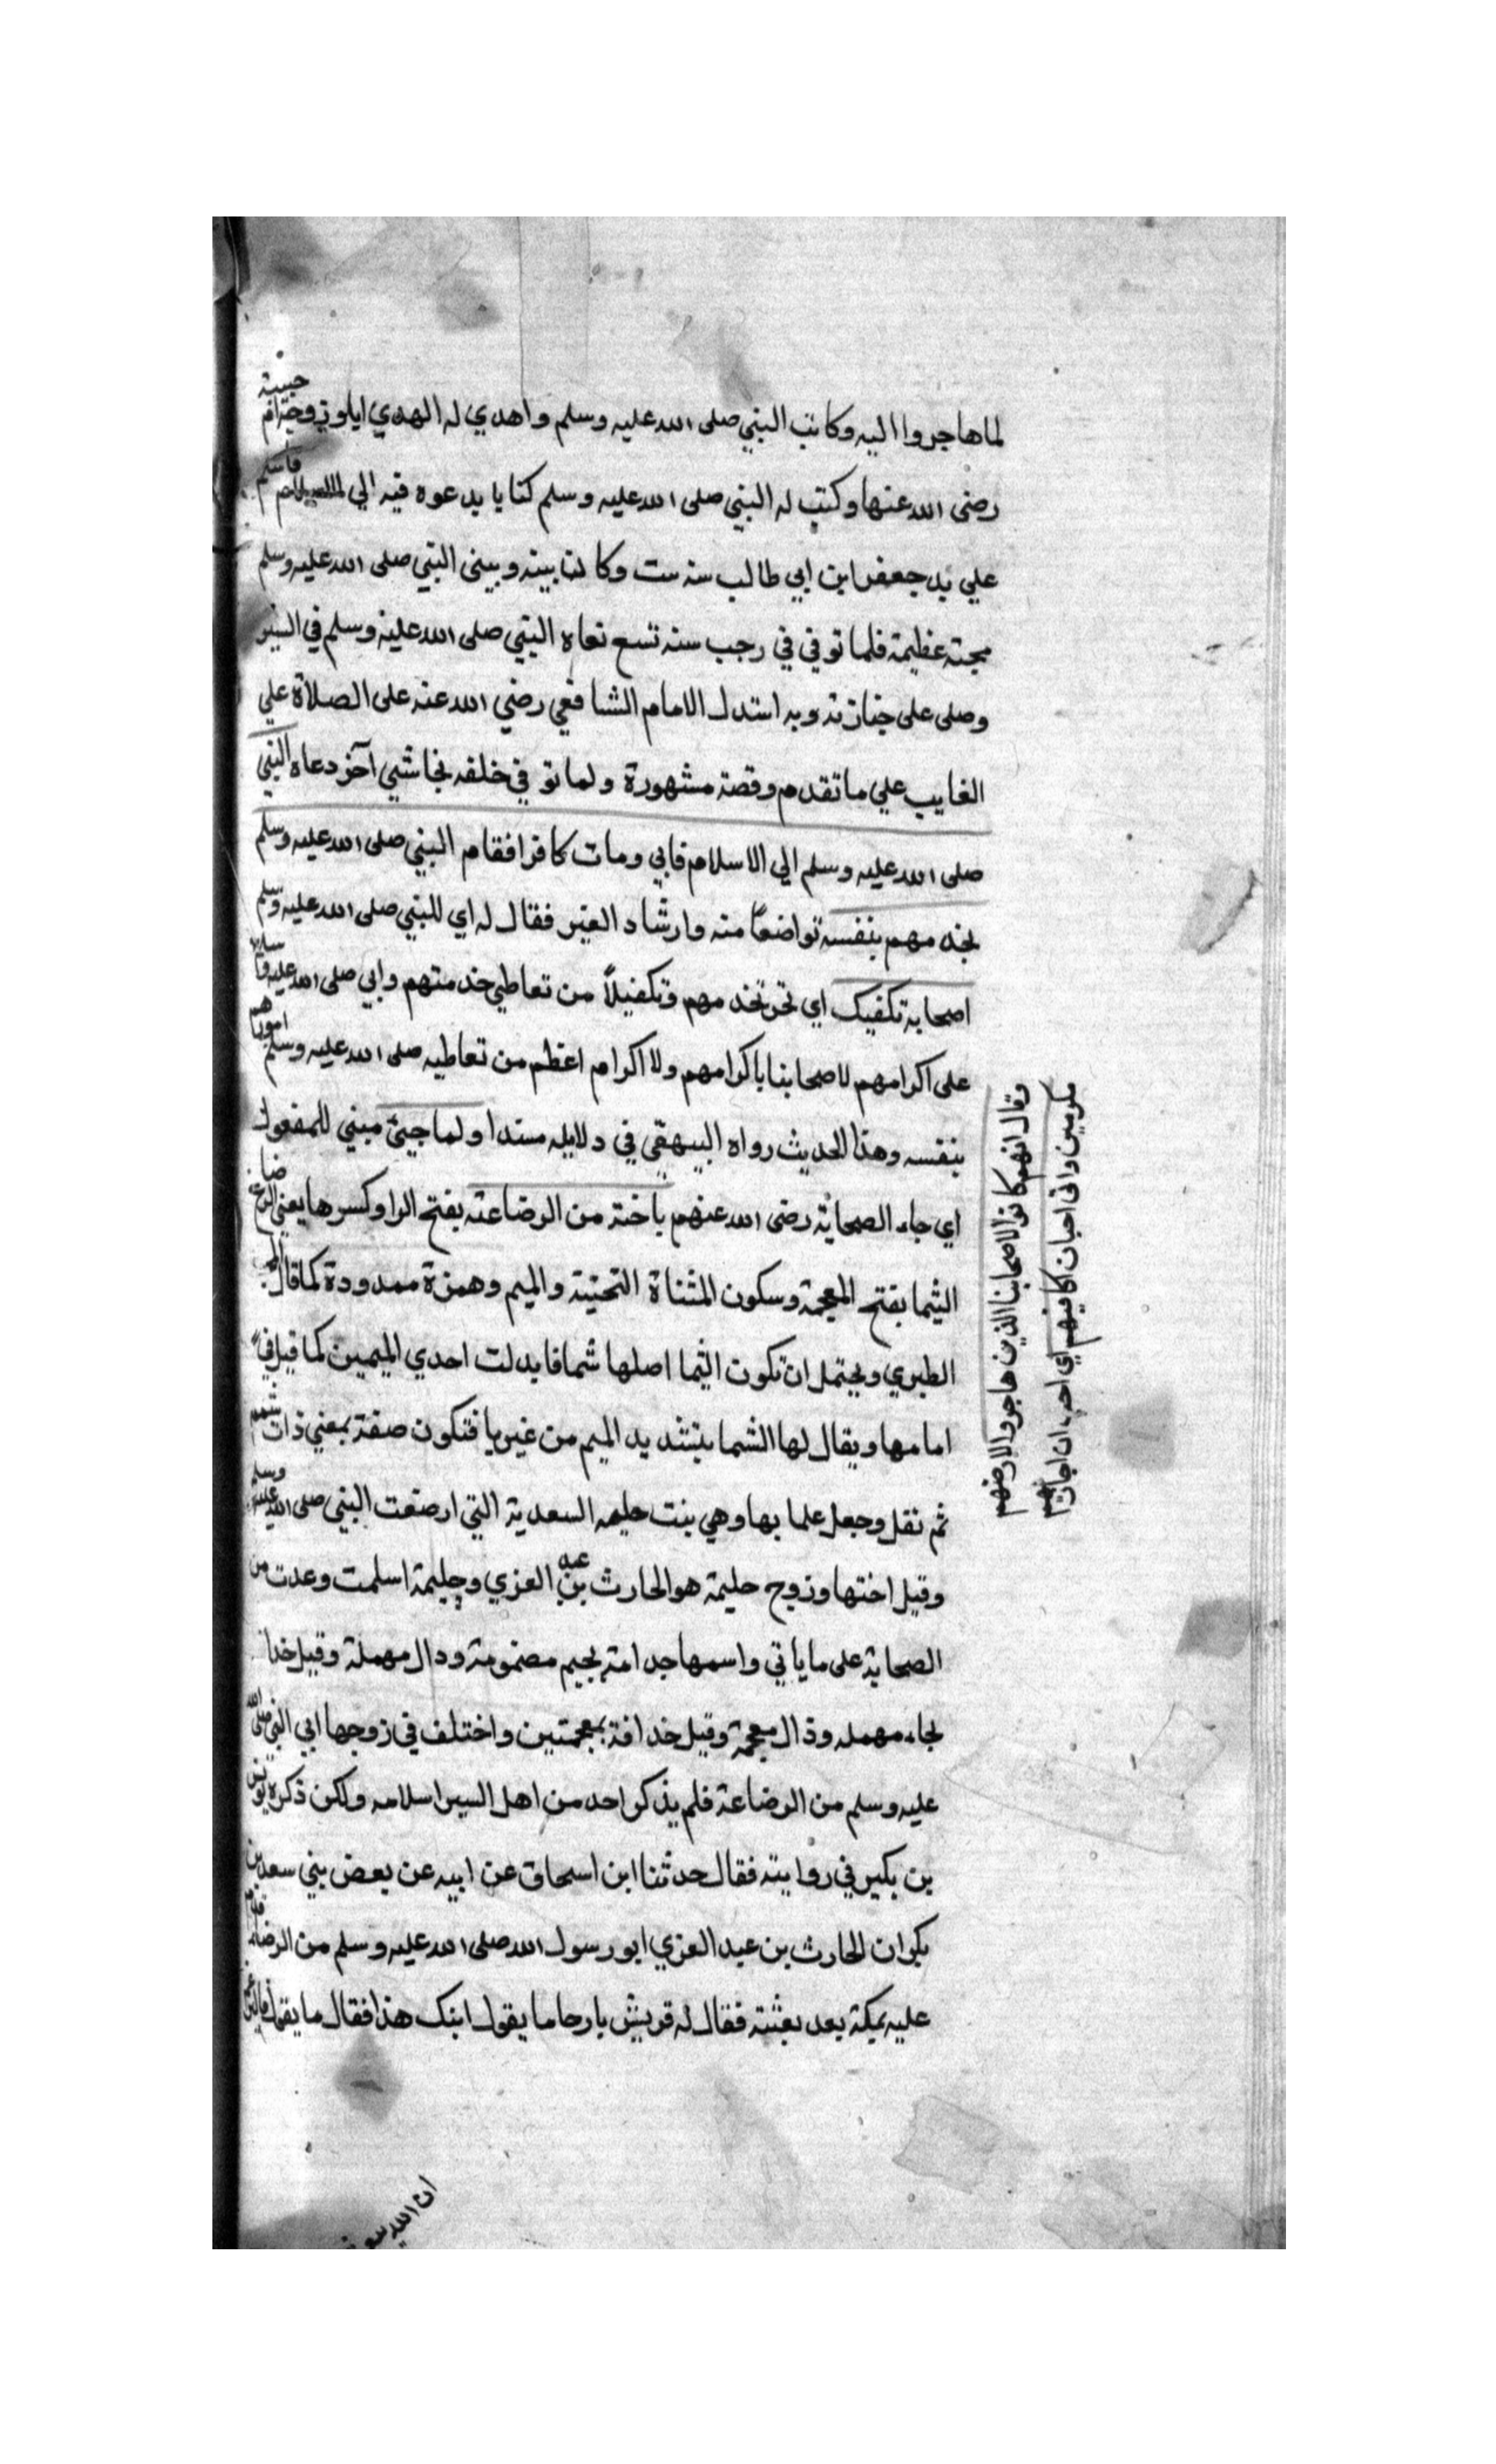 لما هاجروا اليه وكاتب النبي صلى الله عليه وسلم واهدي له الهدي ايلو زوجته ام حبيبة
رضى الله عنها وكتب له النبي صلى الله عليه وسلم كتابا يدعوه فيه الي فاسلم
علي يد جعفر ابن ابي طالب سنه ست وكانت بينه وبينى النبي صلى الله عليه وسلم
محبته عظيمة فلما توفي في رجب سنه تسع نعاه النبي صلى الله عليه وسلم في السير
وصلى على جنازته وبه استدل الامام الشافعي رضي الله عنه على الصلاة علي
الغايب علي ما تقدم وقصة مشهورة ولما توفي خلفه نجاشيى آخر دعاه النبي
صلى الله عليه وسلم الي الاسلام فابي ومات كافرا فقام النبي صلى الله عليه وسلم
يخدمهم بنفسه تواضعاً منه وارشاد الغير فقال له اي للنبي صلى الله عليه وسلم
اصحابه تكفيك اي نحن نخدمهم وتكفيلاً من تعاطي خدمتهم وابي صلى الله عليه
على اكرامهم لاصحابنا باكرامهم ولا اكرام اعظم من تعاطيه صلى الله عليه وسلم امورهم
بنفسه وهذا الحديث رواه البيهقي في دلايله مسندا ولما جيئ مبني للمفعول
اي جاء الصحابة رضى الله عنهم باخته من الرضاعته بفتح الرا وكسرها يعني
الشيما بفتح المعجمة وسكون المثناة التحتية والميم وهمزة ممدودة كما قال المحب
الطبري ويحتمل ان تكون الشيما اصلها شما فابدلت احدي الميمين كما قيل في
اما مها ويقال لها الشما بتشديد الميم من غير يا فتكون صفة بمعني ذات شمم
ثم نقل وجعل علما بها وهي بنت حليمه السعدية التي ارضعت النبي صلى الله عليه وسلم
وقيل اختها وزوج حليمة هو الحارث بن عبد العزي وحليمة اسلمت وعدت من
الصحابة على ما ياتي واسمها جدامته بجيم مضمومة ودال مهملة وقيل خذا
بحاء مهمله وذال معجمة وقيل خذافة بمعجمتين واختلف في زوجها ابي النبي صلى الله
عليه وسلم من الرضاعة فلم يذكر احد من اهل السير اسلامه ولكن ذكره يونس
بن بكير في روايته فقال حدثنا ابن اسحاق عن ابيه عن بعض بني سعد بن
بكر ان الحارث بن عبد العزي ابو رسول الله صلى الله عليه وسلم من الرضاعة قدم
عليه بمكة بعد بعثته فقال له قريش يا رحا ما يقول ابنك هذا فقال ما يقول
وقال انهم كانوا لاصحابنا الذين هاجروا لارضهم
مكرمين واني احبان اكافيهم اي احب ان اجازيهم